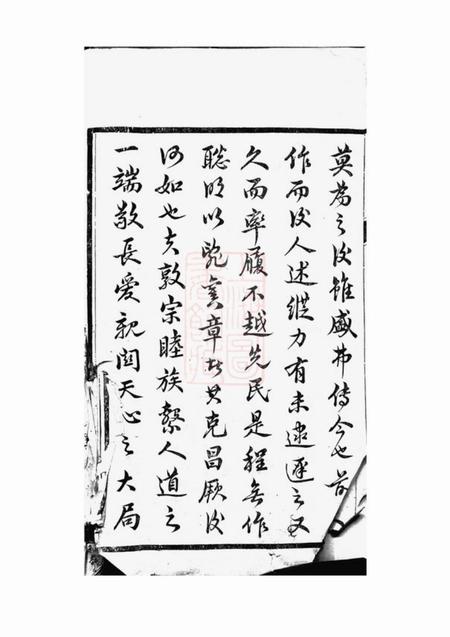 莫為之後雖盛弗傳今也前
作而後人述縱力有未逮遲之又
久而率履不越先民是程無作
聰明以亂舊章於其克昌厥後
何如也夫敦宗睦族繫人道之
一端敬長愛親關天心之大局